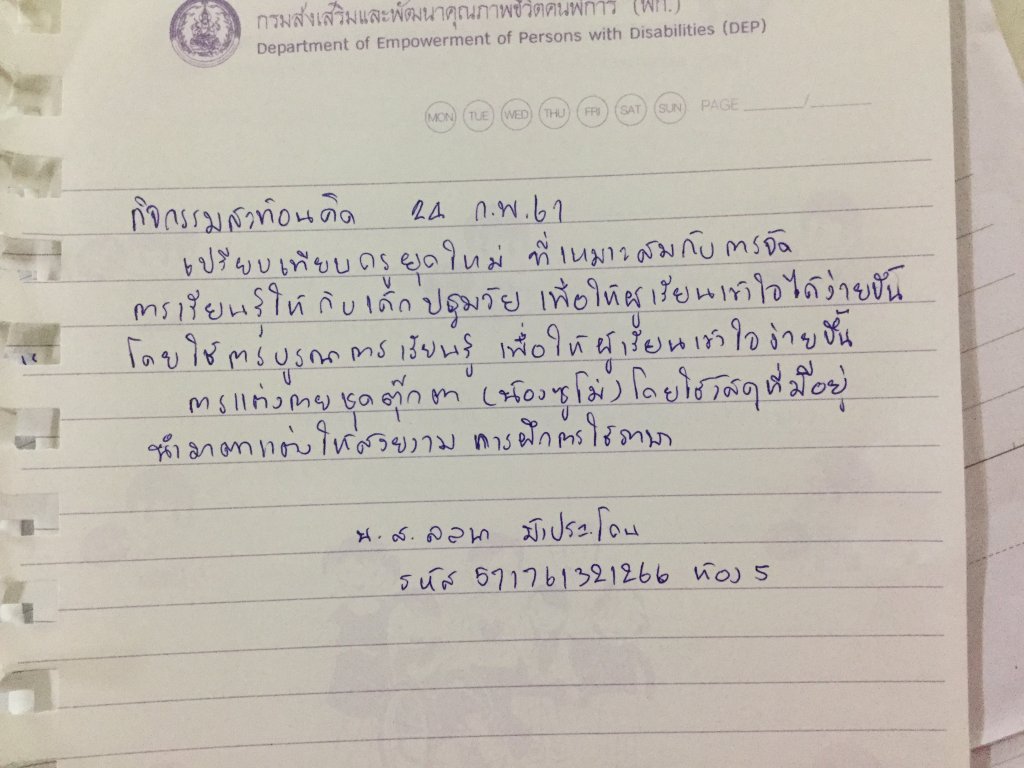 กรมส่งเสริมและพัฒนาคุณภาพชีวิตคนพิการ (พก.)
Department of Empowerment of Persons with Disabilities (DEP)
MON TUE WED THU FRI SAT SUN PAGE ______/______
กิจกรรมสะท้อนคิด 24 ก.พ. 61
เปรียบเทียบครูยุคใหม่ ที่เหมาะสมกับการจัด
การเรียนรู้ให้กับเด็กปฐมวัย เพื่อให้ผู้เรียนเข้าใจได้ง่ายขึ้น
โดยใช้การบูรณาการเรียนรู้ เพื่อให้ผู้เรียนเข้าใจง่ายขึ้น
การแต่งกายชุดตุ๊กตา (น้องซูโม่) โดยใช้วัสดุที่มีอยู่
นำมาตกแต่งให้สวยงาม การฝึกการใช้ภาษา
น.ส.
รหัส 571761321266 ห้อง 5